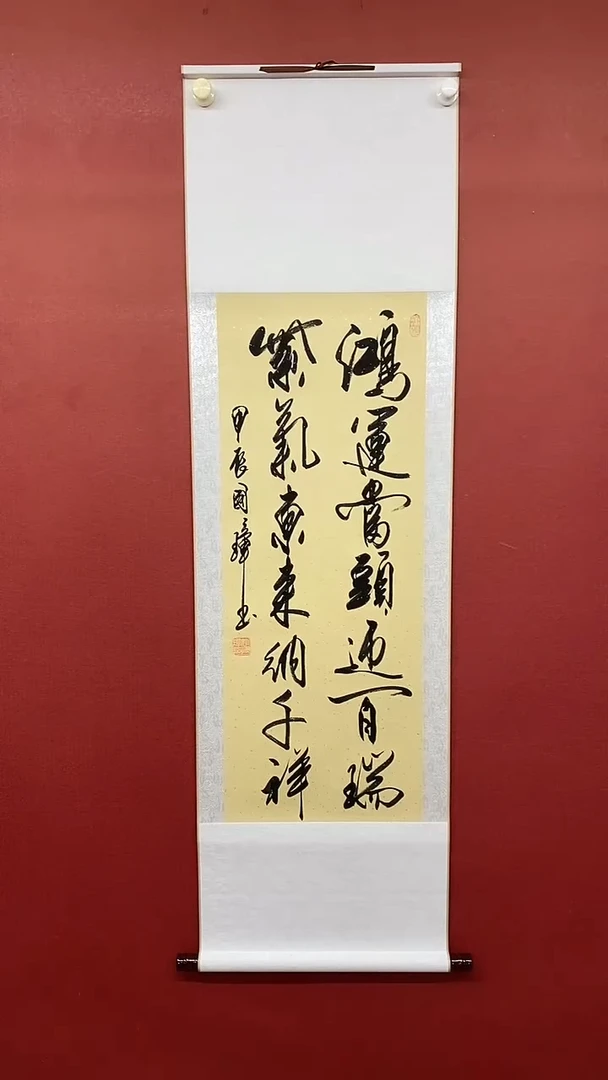 鴻運當頭迎百瑞
紫氣東來納千祥
甲辰國璋书